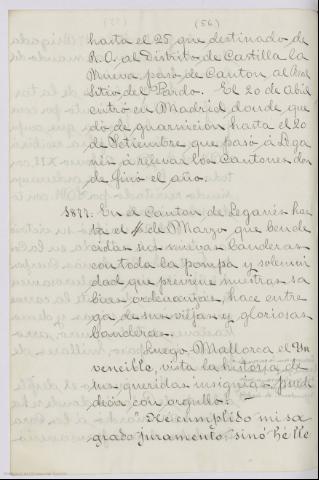 (56)
hasta el 25 que destinado de
R. O. al Distrito de Castilla la
Nueva pasó de Canton al Real
Sitio del Pardo. El 20 de Abil
entró en Madrid donde que
dó de guarnición hasta el 20
de Setiembre que pasó á Lega
nés á relevar los Cantones don
de finó el año.
1877. En el Canton de Leganés has
ta el 1 de Marzo que bende
cidas sus nuevas banderas
con toda la pompa y solemni
dad que previene nuestras sa
bias ordenanzas, hace entre
ga de sus viejas y gloriosas
banderas.
Luego Mallorca el In
vencible, vista la historia de
sus queridas insignias puede
decir con orgullo: —
"He cumplido mi sa
grado juramento, sinó hélle